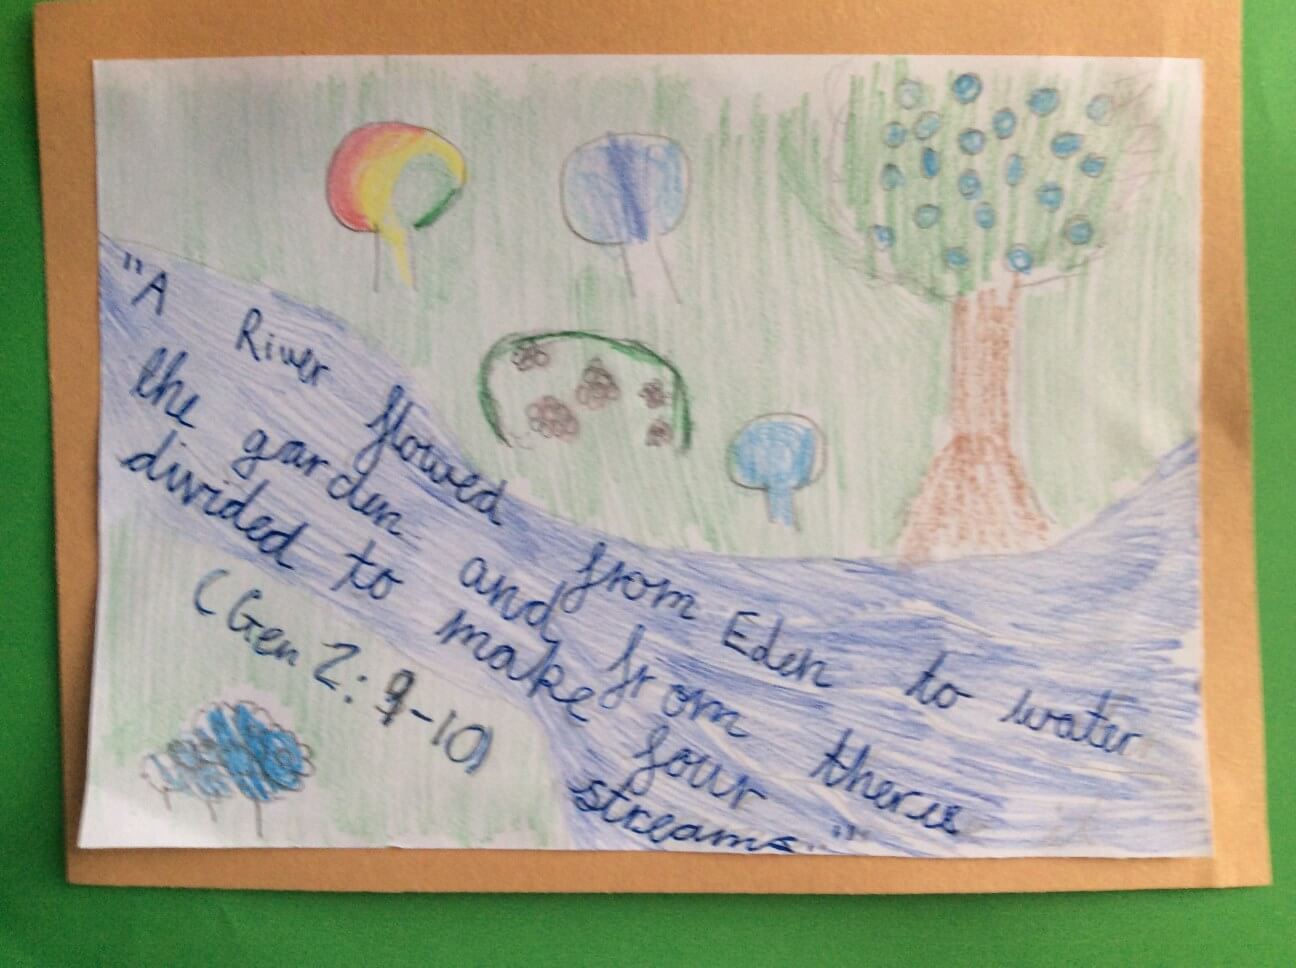 "A River flowed from Eden to water
the garden and from there
divided to make four
streams."
(Gen 2:9-10)